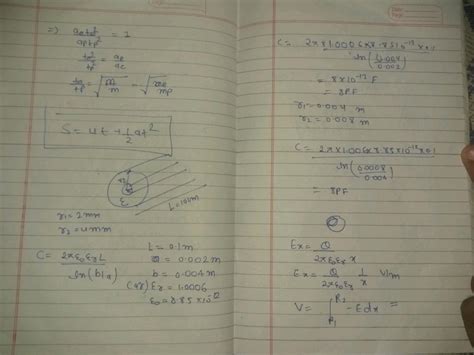 => aete² / aptp² = 1
te² / tp² = ap / ae
te / tp = √
S = ut + ½at²
L=100mm
r₁ = 2mm
r₂ = 4mm
C = 2πε₀εᵣL / ln(b/a)
L = 0.1m
a = 0.002m
b = 0.004m
(air) εᵣ = 1.0006
ε₀ = 8.85 × 10⁻¹²
C = 2π×1.0006×8.85×10⁻¹²×0.1
ln(0.004 / 0.002)
= 8×10⁻¹² F
= 8PF
r₁ = 0.004 m
r₂ = 0.008 m
C = 2π×1.006×8.85×10⁻¹²×0.1
ln(0.0008 / 0.004)
= 8PF
Ex = Q / 2πε₀εᵣ x
Ex = Q / 2πε₀εᵣ 1/x V/m
V = ∫ R₂ R₁ -Edx =